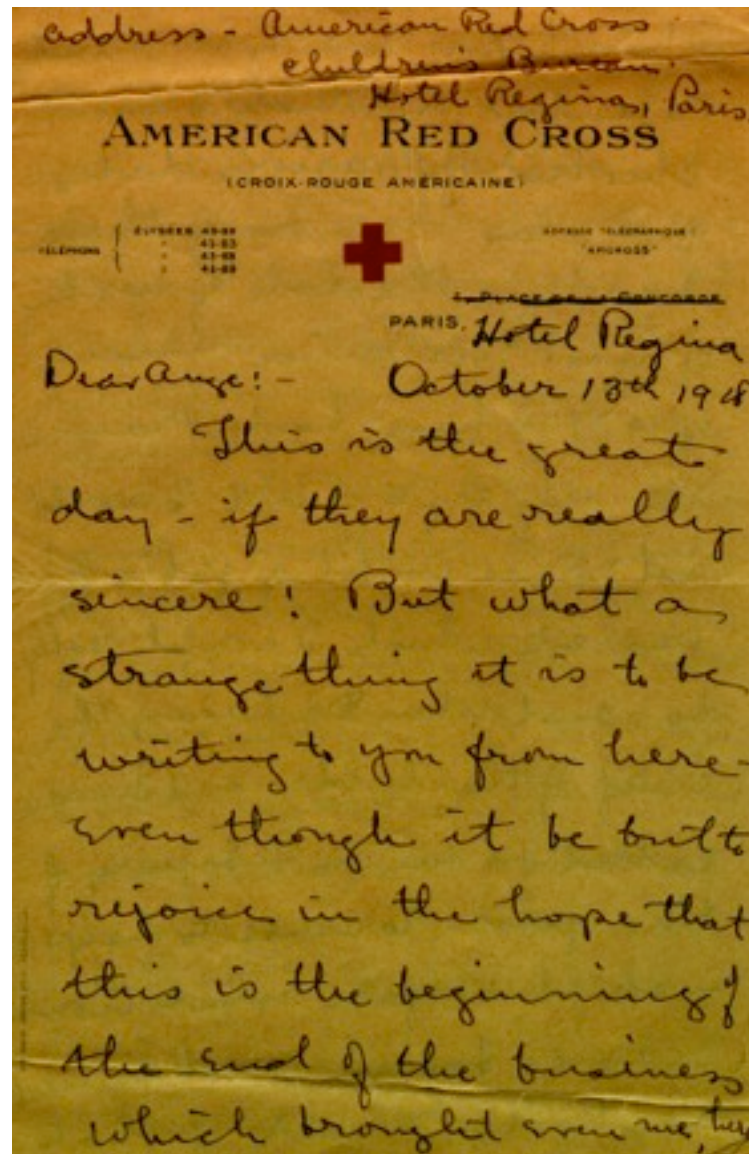 address - American Red Cross
Children's Bureau.
Hotel Regina, Paris
AMERICAN RED CROSS
(CROIX-ROUGE AMÉRICAINE)
TÉLÉPHONE
ÉLYSÉES
ADRESSE TÉLÉGRAPHIQUE:
"AMCROSS"
4, PLACE DE LA CONCORDE
PARIS, Hotel Regina
Dear Ange:- October 13th 1918
This is the great
day - if they are really
sincere! But what a
strange thing it is to be
writing to you from here -
even though it be but to
rejoice in the hope that
this is the beginning of
the end of the business
which brought even me, here